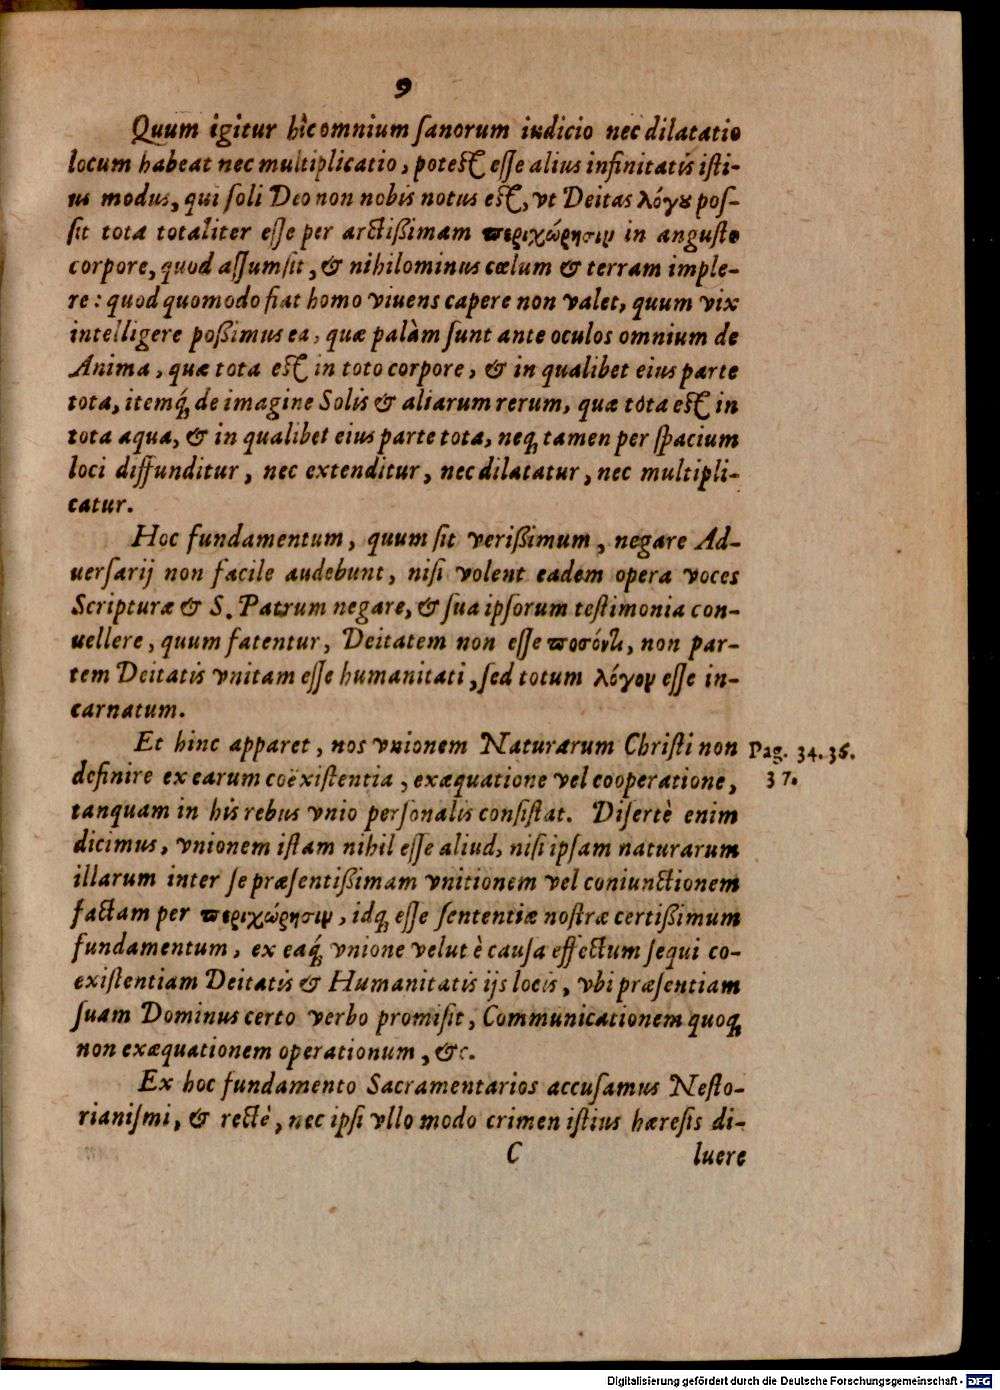 9
Quum igitur hîc omnium ſanorum iudicio nec dilatatio
locum habeat nec multiplicatio, potest eſſe alius infinitatis iſti-
us modus, qui ſoli Deo non nobis notus est, vt Deitas λόγȣ poſ-
ſit tota totaliter eſſe per arctißimam περιχώρησιν in anguſto
corpore, quod aſſumſit, & nihilominus cœlum & terram imple-
re: quod quomodo fiat homo viuens capere non valet, quum vix
intelligere poßimus ea, quæ palàm ſunt ante oculos omnium de
Anima, quæ tota est in toto corpore, & in qualibet eius parte
tota, itemq́; de imagine Solis & aliarum rerum, quæ tota est in
tota aqua, & in qualibet eius parte tota, neq; tamen per ſpacium
loci diffunditur, nec extenditur, nec dilatatur, nec multipli-
catur.
Hoc fundamentum, quum ſit verißimum, negare Ad-
uerſarij non facile audebunt, niſi volent eadem opera voces
Scripturæ & S. Patrum negare, & ſua ipſorum teſtimonia con-
uellere, quum fatentur, Deitatem non eſſe ποσόν τι, non par-
tem Deitatis vnitam eſſe humanitati, ſed totum λόγον eſſe in-
carnatum.
Et hinc apparet, nos vnionem Naturarum Chriſti non
Pag. 34. 36.
37.
definire ex earum coëxiſtentia, exæquatione vel cooperatione,
tanquam in his rebus vnio perſonalis conſiſtat. Diſertè enim
dicimus, vnionem iſtam nihil eſſe aliud, niſi ipſam naturarum
illarum inter ſe præſentißimam vnitionem vel coniunctionem
factam per περιχώρησιν, idq; eſſe ſententiæ noſtræ certißimum
fundamentum, ex eaq́; vnione velut è cauſa effectum ſequi co-
exiſtentiam Deitatis & Humanitatis ijs locis, vbi præſentiam
ſuam Dominus certo verbo promiſit, Communicationem quoq;
non exæquationem operationum, &c.
Ex hoc fundamento Sacramentarios accuſamus Neſto-
rianiſmi, & rectè, nec ipſi vllo modo crimen iſtius hæreſis di-
C
luere
Digitalisierung gefördert durch die Deutsche Forschungsgemeinschaft - DFG